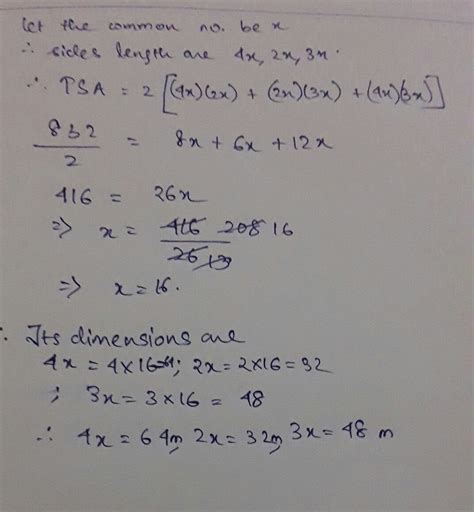 let the common no. be x
∴ sides length are 4x, 2x, 3x.
∴ TSA = 2 [(4x)(2x) + (2x)(3x) + (4x)(3x)]
832/2 = 8x + 6x + 12x
416 = 26x
⇒ x = 416 208 16 / 26 13
⇒ x = 16.
∴ Its dimensions are
4x = 4×16 ; 2x = 2×16 = 32
; 3x = 3×16 = 48
∴ 4x = 64m, 2x = 32m, 3x = 48 m